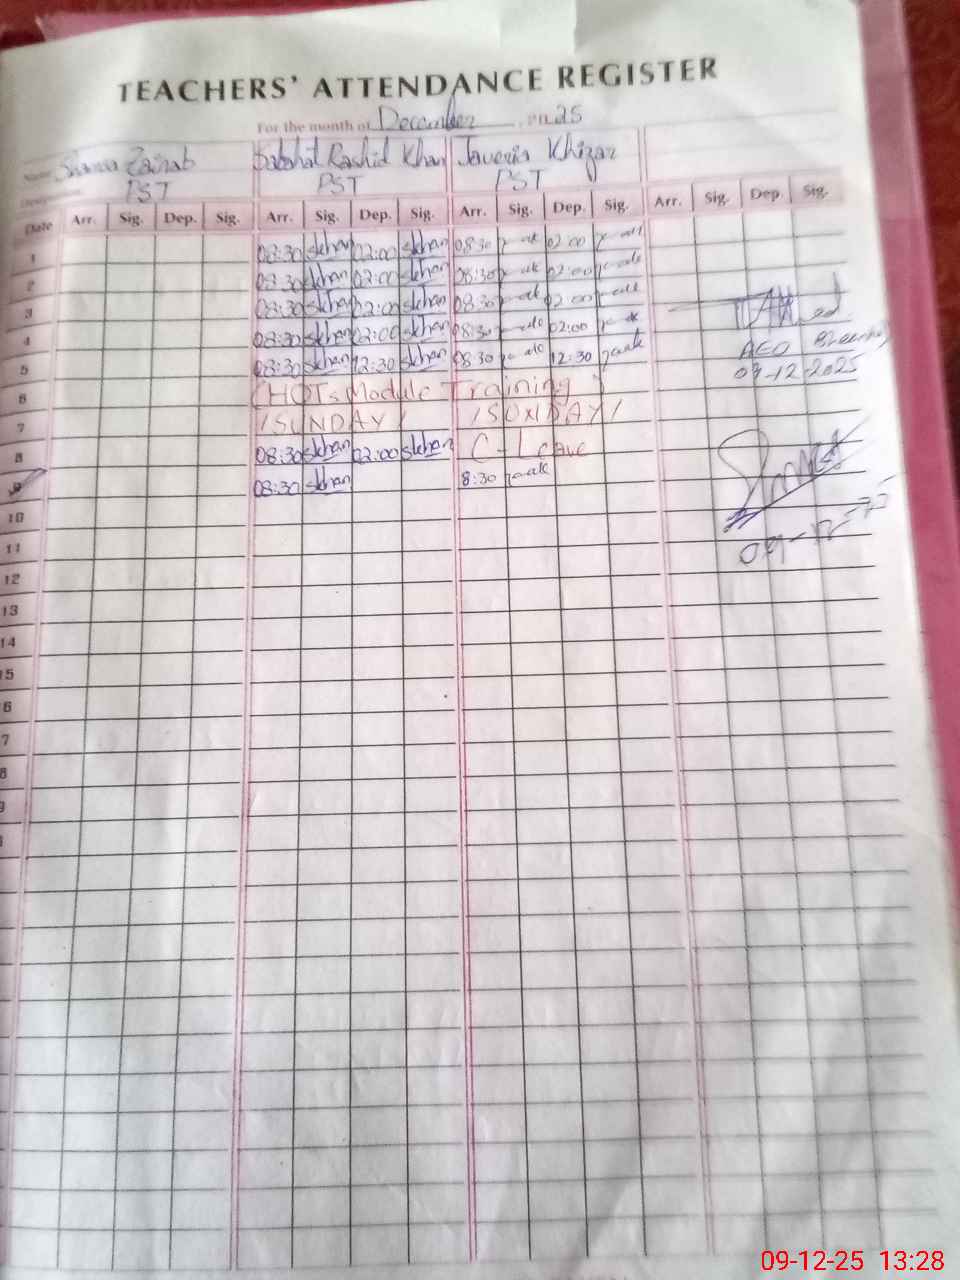 TEACHERS' ATTENDANCE REGISTER
For the month of December 2025
Name Shamsa Zainab Sabahat Rashid Khan Javeria Khizar
PST PST PST
Date Arr. Sig. Dep. Sig. Arr. Sig. Dep. Sig. Arr. Sig. Dep. Sig. Arr. Sig. Dep. Sig.
1 08:30 skhan 02:00 skhan 08:30 02:00
2 08:30 skhan 02:00 skhan 08:30 02:00
3 08:30 skhan 02:00 skhan 08:30 02:00
4 08:30 skhan 02:00 skhan 08:30 02:00
5 08:30 skhan 12:30 skhan 08:30 12:30
AEO
09-12-2025
6 (HOTs Module Training)
7 /SUNDAY/ /SUNDAY/
8 08:30 skhan 02:00 skhan C-Leave
9 08:30 skhan 8:30
10
09-12-25
11
12
13
14
15
6
7
8
9
09-12-25 13:28